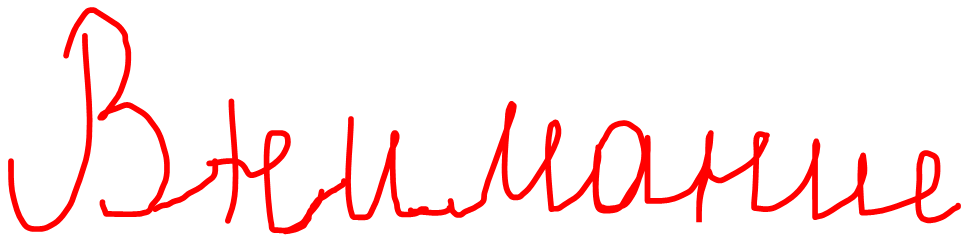 Внимание